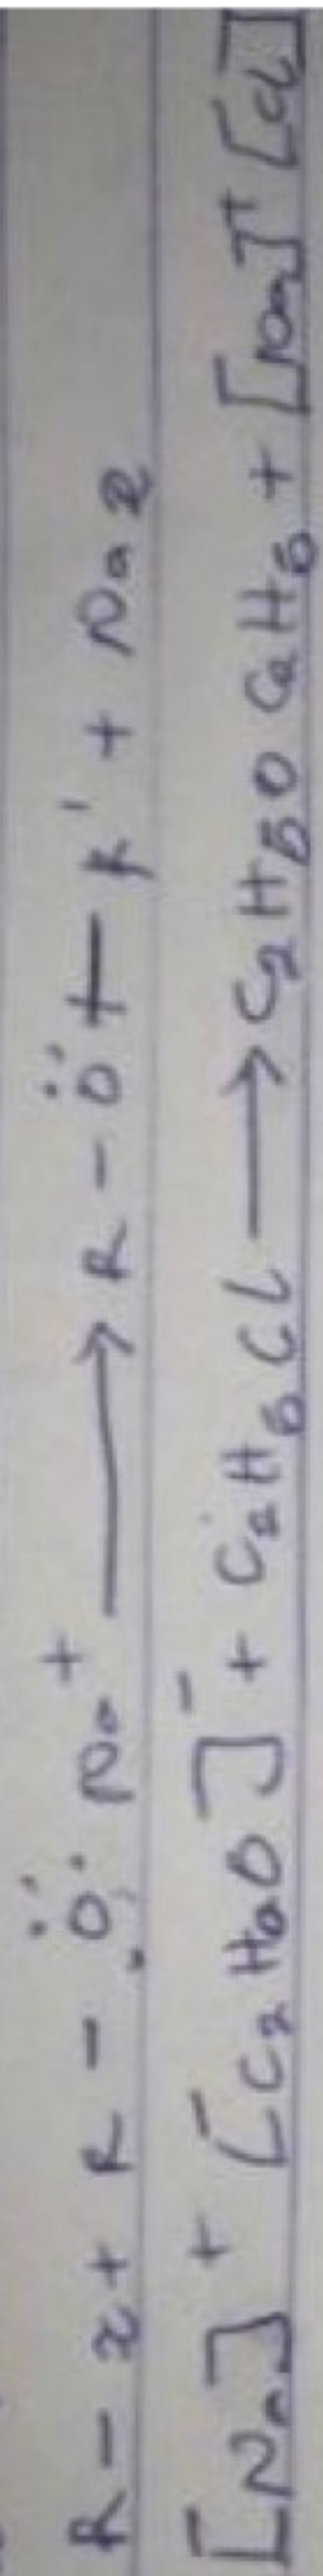 R - x + R - Ö: Na⁺ ⟶ R - Ö - R' + Na x
[Na]⁺ [C₂H₅O]⁻ + C₂H₅Cl ⟶ C₂H₅OC₂H₅ + [Na]⁺ [Cl]